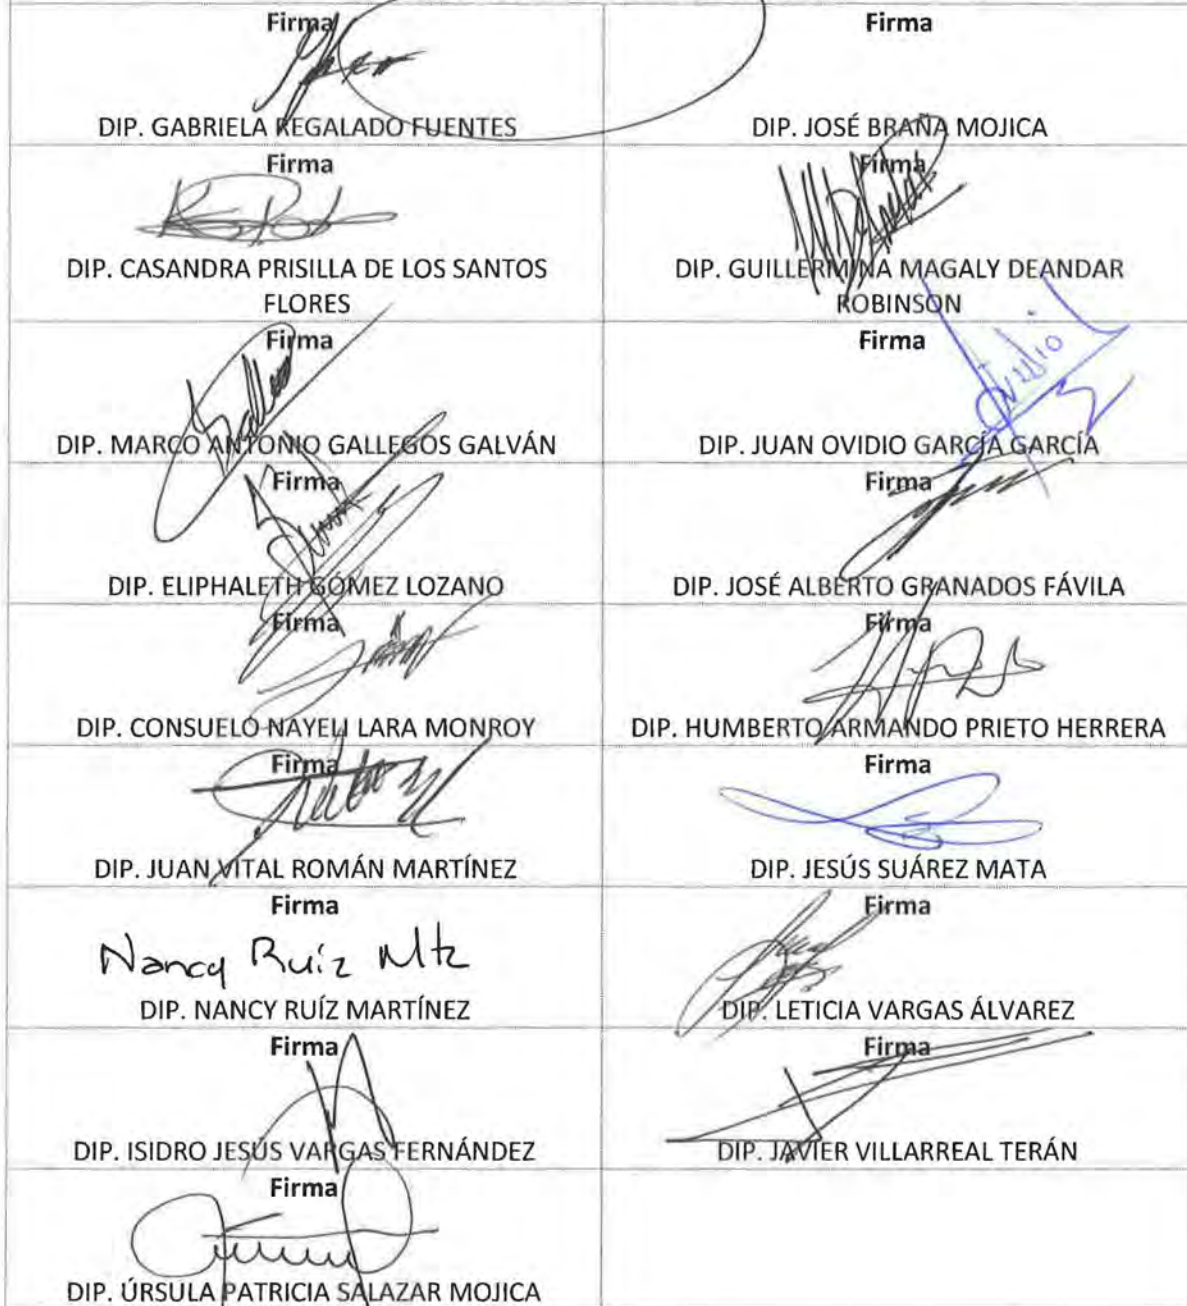 Firma
Firma
DIP. GABRIELA REGALADO FUENTES
DIP. JOSÉ BRAÑA MOJICA
Firma
Firma
DIP. CASANDRA PRISILLA DE LOS SANTOS
FLORES
DIP. GUILLERMINA MAGALY DEANDAR
ROBINSON
Firma
Firma
Ovidio
DIP. MARCO ANTONIO GALLEGOS GALVÁN
DIP. JUAN OVIDIO GARCÍA GARCÍA
Firma
Firma
DIP. ELIPHALETH GÓMEZ LOZANO
DIP. JOSÉ ALBERTO GRANADOS FÁVILA
Firma
Firma
DIP. CONSUELO NAYELI LARA MONROY
DIP. HUMBERTO ARMANDO PRIETO HERRERA
Firma
Firma
DIP. JUAN VITAL ROMÁN MARTÍNEZ
DIP. JESÚS SUÁREZ MATA
Firma
Firma
Nancy Ruíz Mtz
DIP. NANCY RUÍZ MARTÍNEZ
DIP. LETICIA VARGAS ÁLVAREZ
Firma
Firma
DIP. ISIDRO JESÚS VARGAS FERNÁNDEZ
DIP. JAVIER VILLARREAL TERÁN
Firma
DIP. ÚRSULA PATRICIA SALAZAR MOJICA